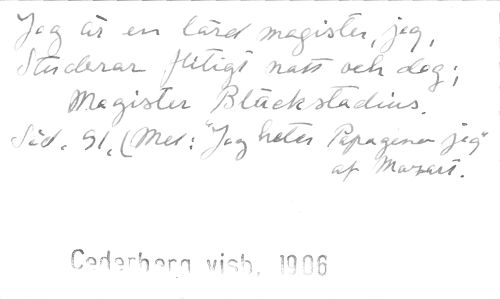 Jag är en lärd magister, jag,
Studerar flitigt natt och dag;
Magister Bläckstadius.
Söd. 91. (Mel: "Jag heter Papageno jag"
af Mozart.
Cederberg visb. 1906